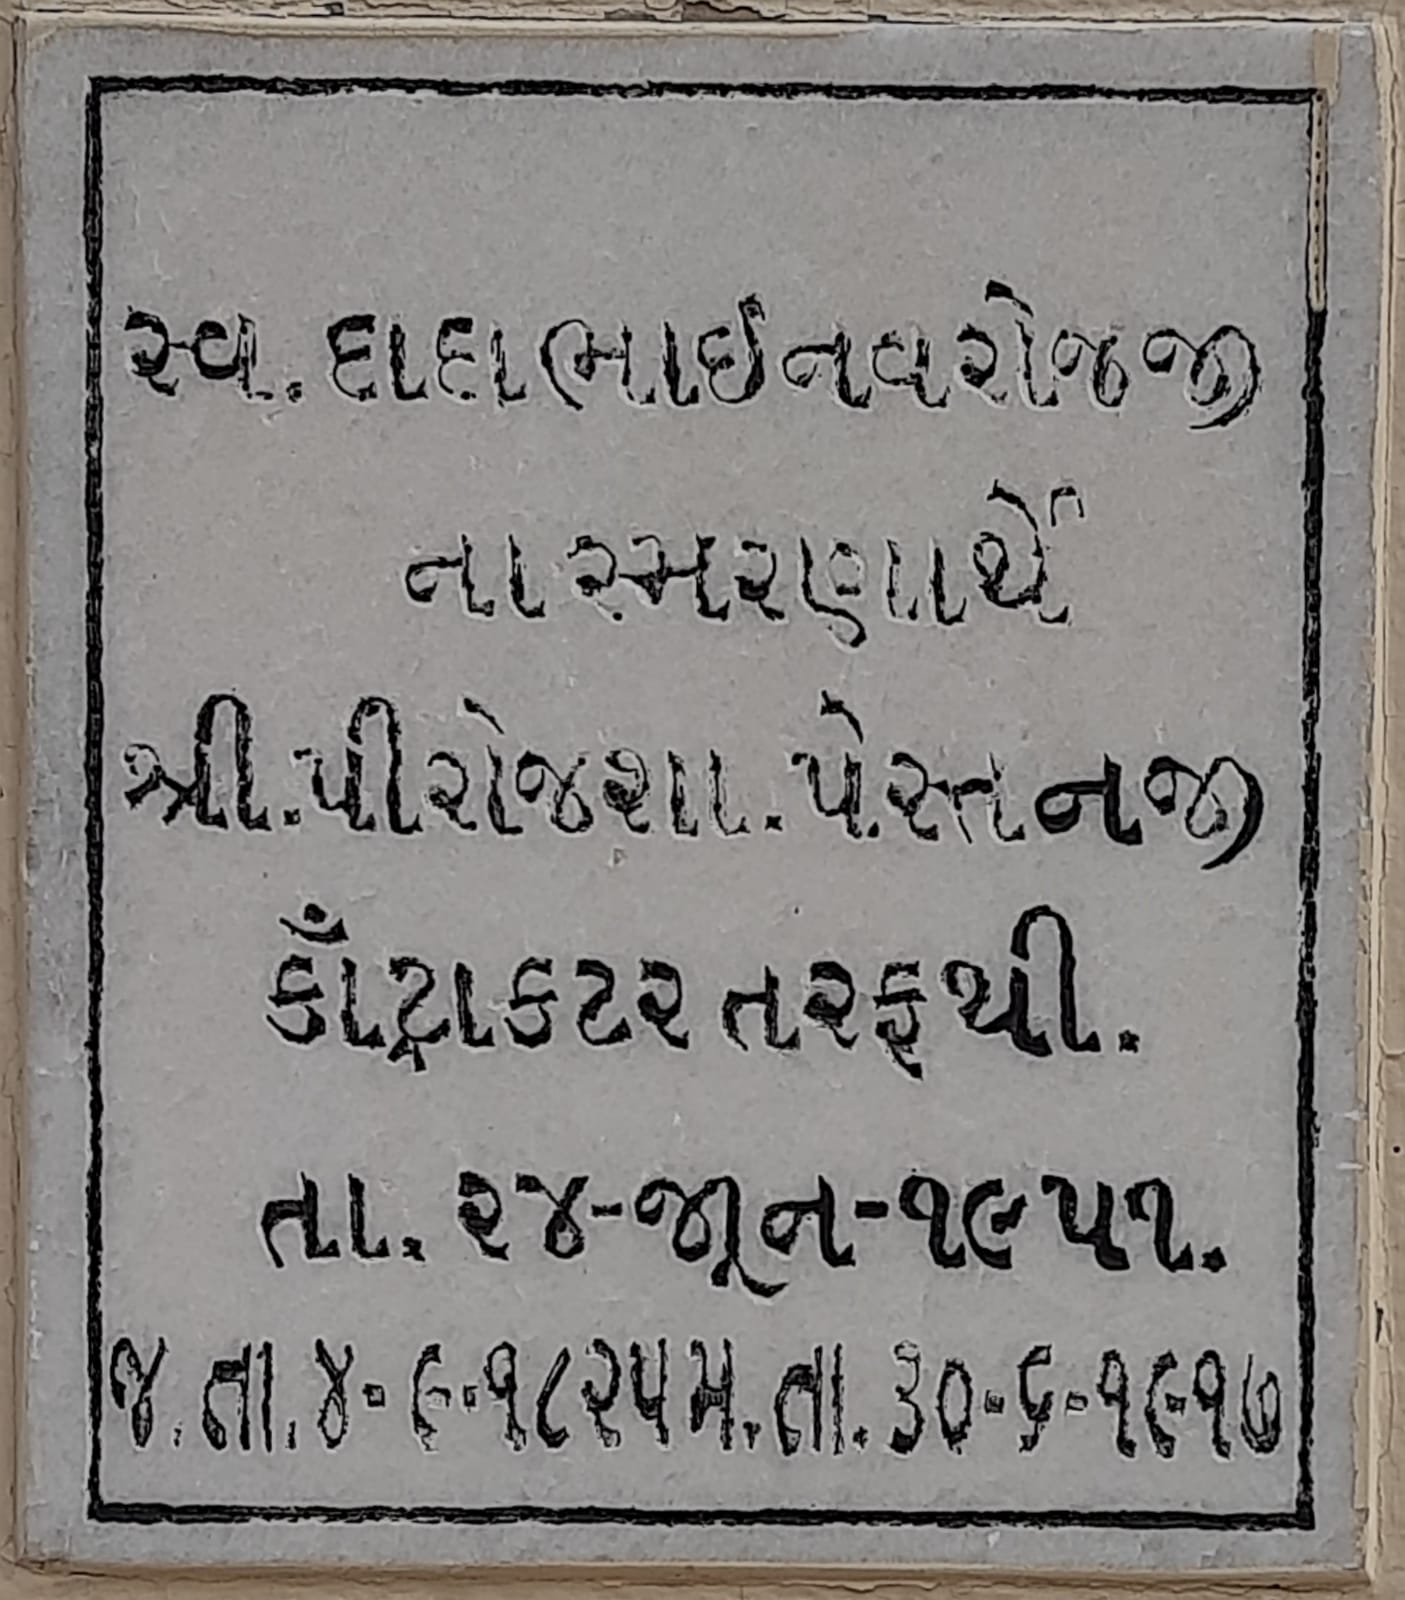 સ્વ. દાદાભાઈ નવરોજજી
ના સ્મરણાર્થે
શ્રી. પીરોજશા. પેસ્તનજી
કૉંટ્રાકટર તરફથી.
તા. ૨૪-જૂન-૧૯૫૧.
જ. તા. ૪-૯-૧૮૨૫ મ. તા. ૩૦-૬-૧૯૧૭